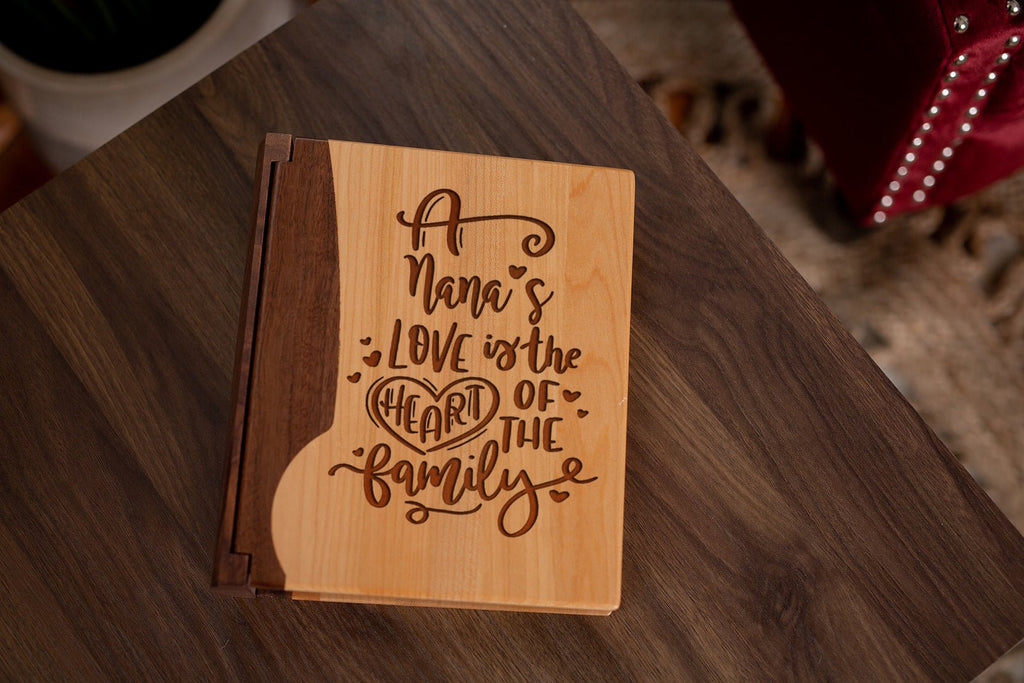 A
Nana's
LOVE is the
HEART OF
THE
family